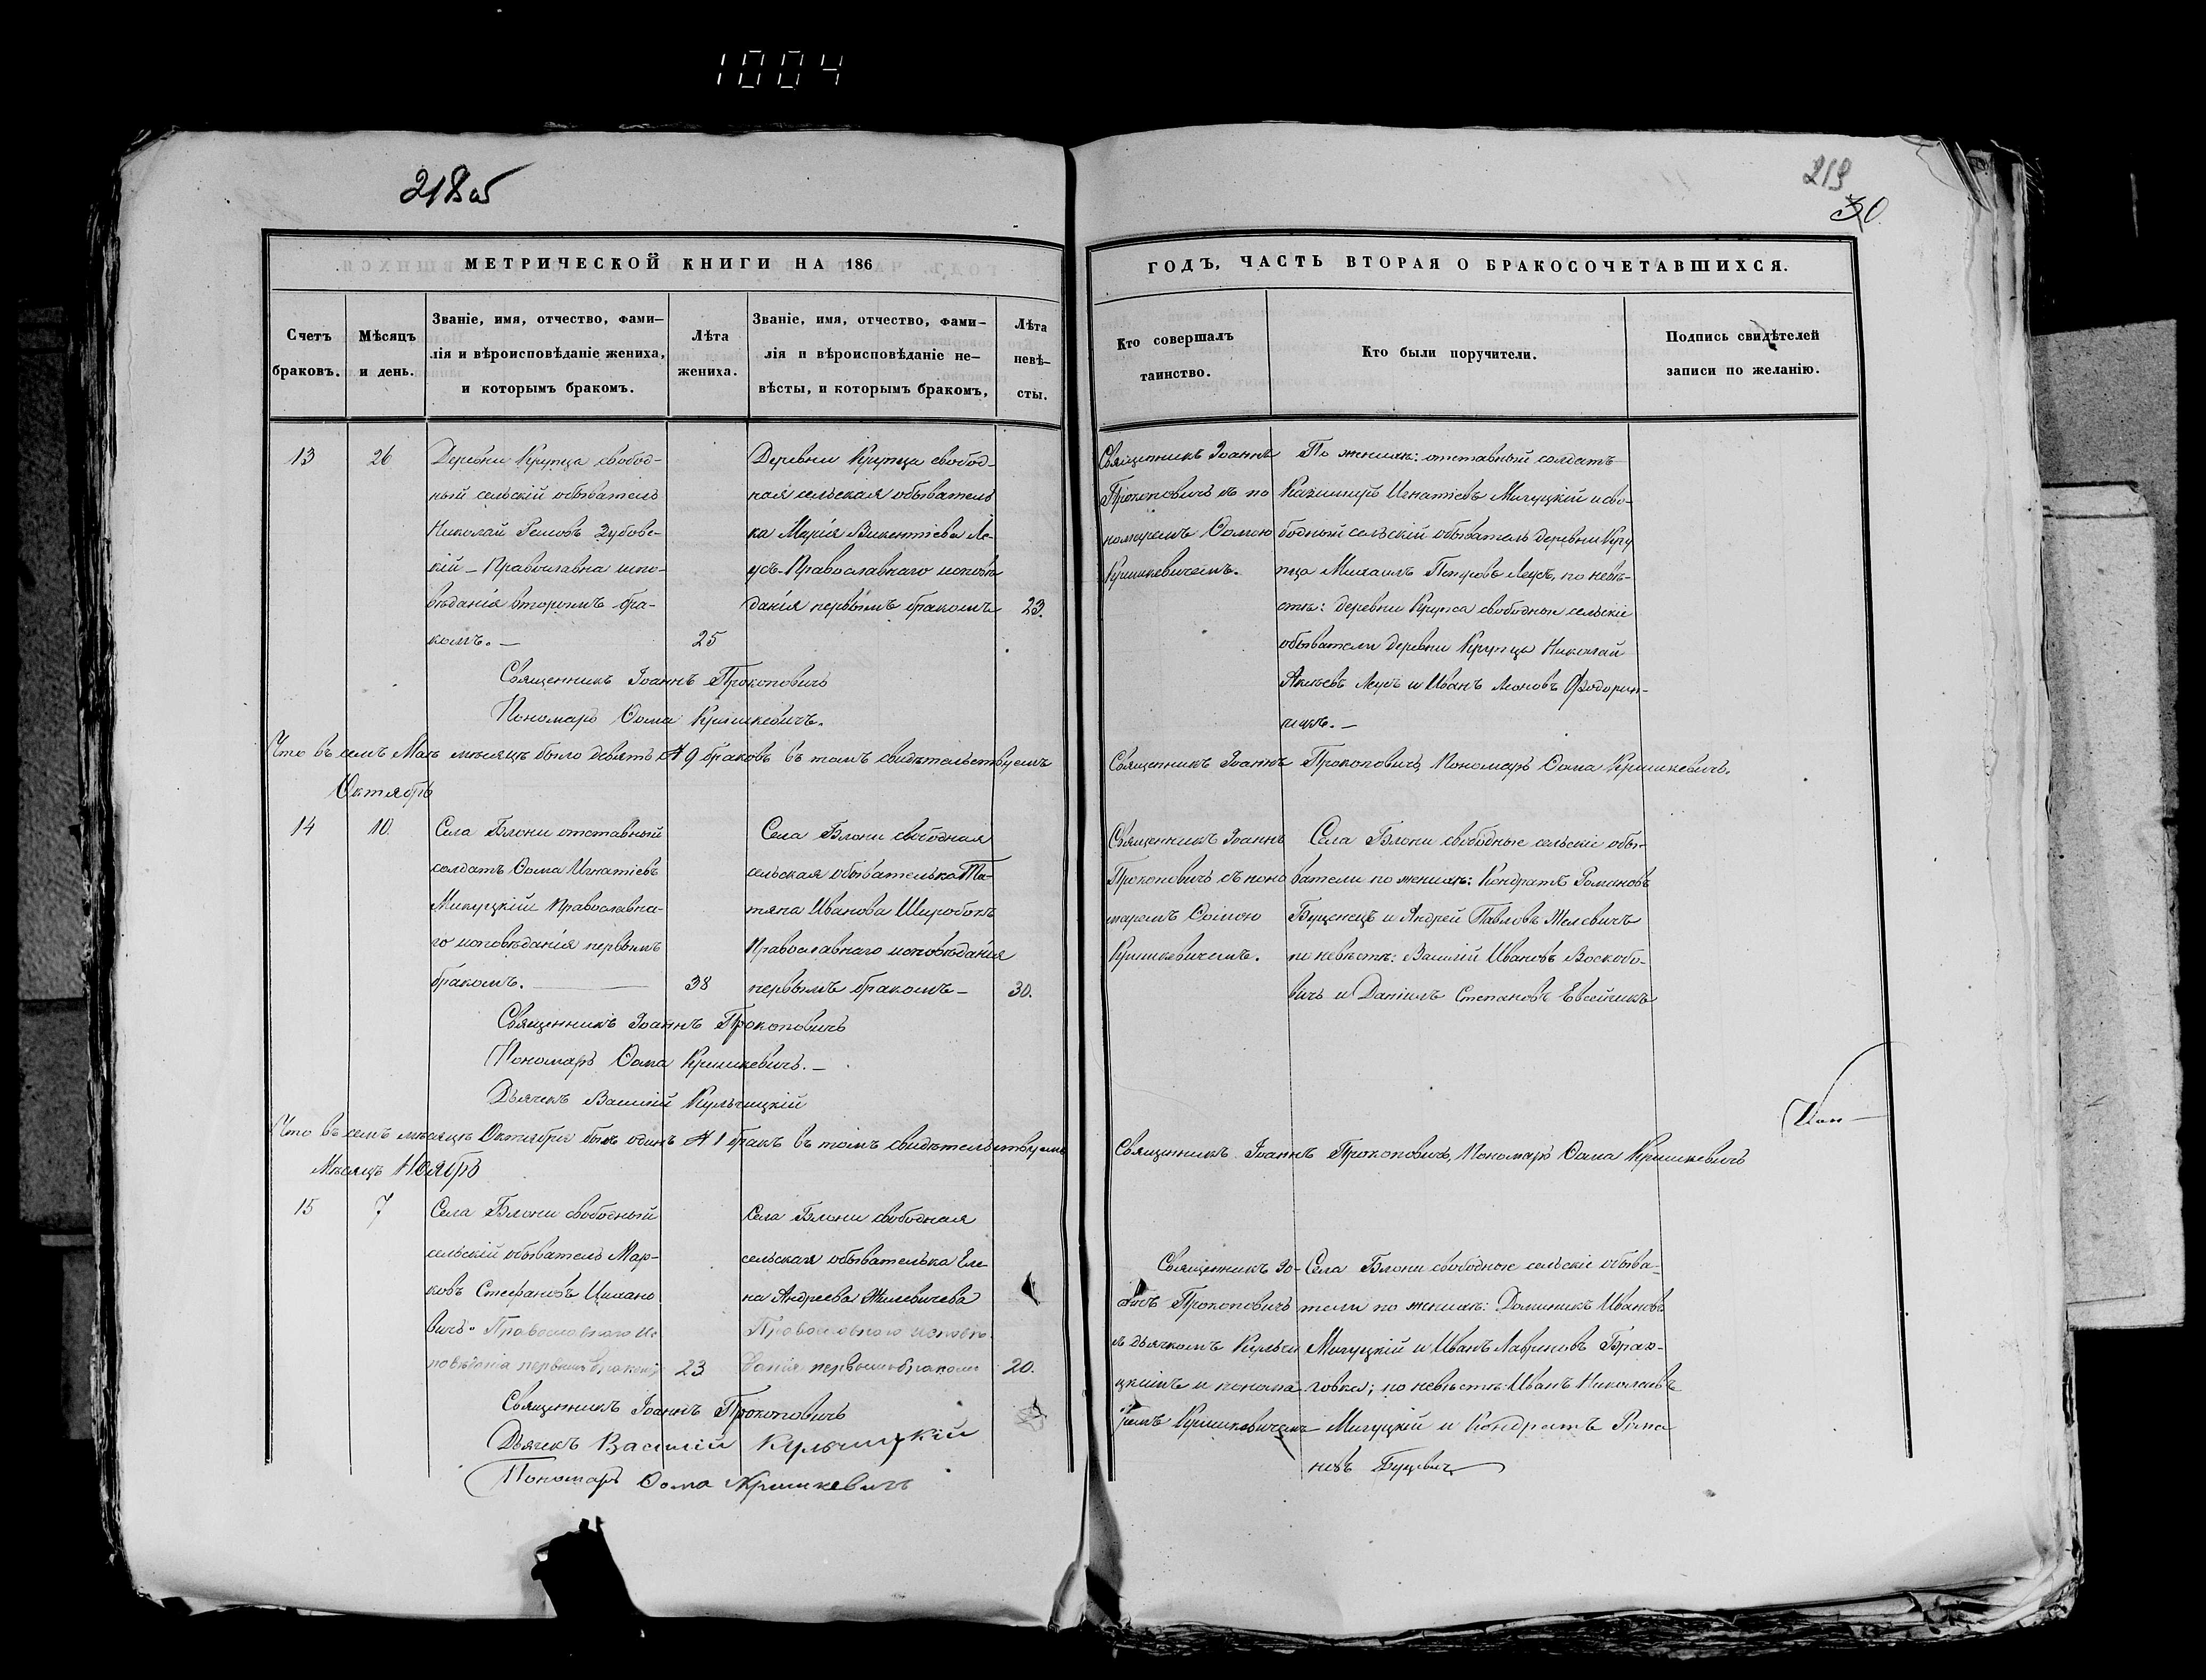 1004
218об
219
30
МЕТРИЧЕСКОЙ КНИГИ НА 186
Счетъ
браковъ.
Мѣсяцъ
и день.
Званіе, имя, отчество, фами-
лія и вѣроисповѣданіе жениха,
и которымъ бракомъ.
Лѣта
жениха.
Званіе, имя, отчество, фами-
лія и вѣроисповѣданіе не-
вѣсты, и которымъ бракомъ,
Лѣта
невѣ-
сты.
13
26
Деревни Крупца свобод-
ный сельскій обыватель
Николай Зубовс-
кій - Православна испо-
вѣданія вторымъ бра-
комъ. —
25
Деревни Крупца свобод-
ная сельская обыватель
ка Марія Викентіева Ле-
усъ - Православнаго исповѣ
данія первымъ бракомъ
23.
Священникъ Іоаннъ Прокоповичъ
Пономарь Ѳома Кришкевичъ.
Что въ семъ Маѣ мѣсяцѣ было девять № 9 браковъ въ томъ свидѣтельствуемъ
Октябрь
14
10.
Села Блони отставный
солдатъ Ѳома Игнатіевъ
Мигуцкій Православна-
го исповѣданія первымъ
бракомъ. —
38
Села Блони свободная
сельская обывателька Та-
тяна Иванова Широбокъ
Православнаго исповѣданія
первымъ бракомъ -
30.
Священникъ Іоаннъ Прокоповичъ
Пономарь Ѳома Кришкевичъ. -
Дьячекъ Василій Кульчицкій
Что въ семъ мѣсяцѣ Октябрѣ былъ одинъ № 1 бракъ въ томъ свидѣтельствуемъ
Мѣсяцъ Ноябрь
15
7
Села Блони свободный
сельскій обыватель Мар-
ковъ Стефановъ
вичъ. Православнаго ис
повѣданія первымъ бракомъ
23
Села Блони свободная
сельская обывателька Еле
на Андреева Жилевичева
Православнаго исповѣ-
данія первымъ бракомъ
20.
Священникъ Іоаннъ Прокоповичъ
Дьячекъ Василій Кульчицкій
Пономарь Ѳома Кришкевичъ
ГОДЪ, ЧАСТЬ ВТОРАЯ О БРАКОСОЧЕТАВШИХСЯ.
Кто совершалъ
таинство.
Кто были поручители.
Подпись свидѣтелей
записи по желанію.
Священникъ Іоаннъ
Прокоповичъ съ по
номаремъ Ѳомою
Кришкевичемъ.
По женихѣ: отставный солдатъ
Казимиръ Игнатіевъ Мигуцкій и сво-
бодный сельскій обыватель деревни Кру
пца Михаилъ Петровъ Леусъ, по невѣ-
стѣ: деревни Крупца свободные сельскіе
обыватели деревни Крупца Николай
Леусъ и Иванъ
Священникъ Іоаннъ Прокоповичъ, Пономарь Ѳома Кришкевичъ.
Священникъ Іоаннъ
Прокоповичъ съ поно
маремъ Ѳомою
Кришкевичемъ.
Села Блони свободные сельскіе обы-
ватели по женихѣ: Кондратъ Романовъ
Буценецъ и Андрей Павловъ Жилевичъ
по невѣстѣ: Василій Ивановъ Воскобо-
вичъ и Даніилъ Степановъ Евсейчикъ
Священникъ Іоаннъ Прокоповичъ, Пономарь Ѳома Кришкевичъ
Священникъ Іо-
аннъ Прокоповичъ
съ дьячкомъ Кульчи
цкимъ и понома
ремъ Кришкевичемъ
Села Блони свободные сельскіе обыва-
тели по женихѣ: Доминикъ Ивановъ
Мигуцкій и Иванъ Лавриновъ
по невѣстѣ: Иванъ Николаевъ
Мигуцкій и Кондратъ Рома
новъ Буцевичъ